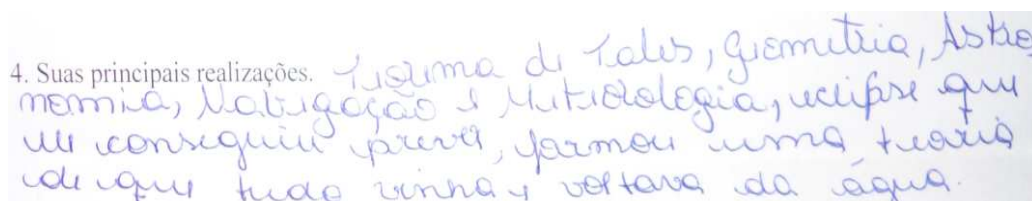 4. Suas principais realizações. Teorema de Tales, Geometria, Astro
nomia, Navegação e Meteorologia, eclipse que
ele conseguiu prever, formou uma teoria
de que tudo vinha e voltava da água.